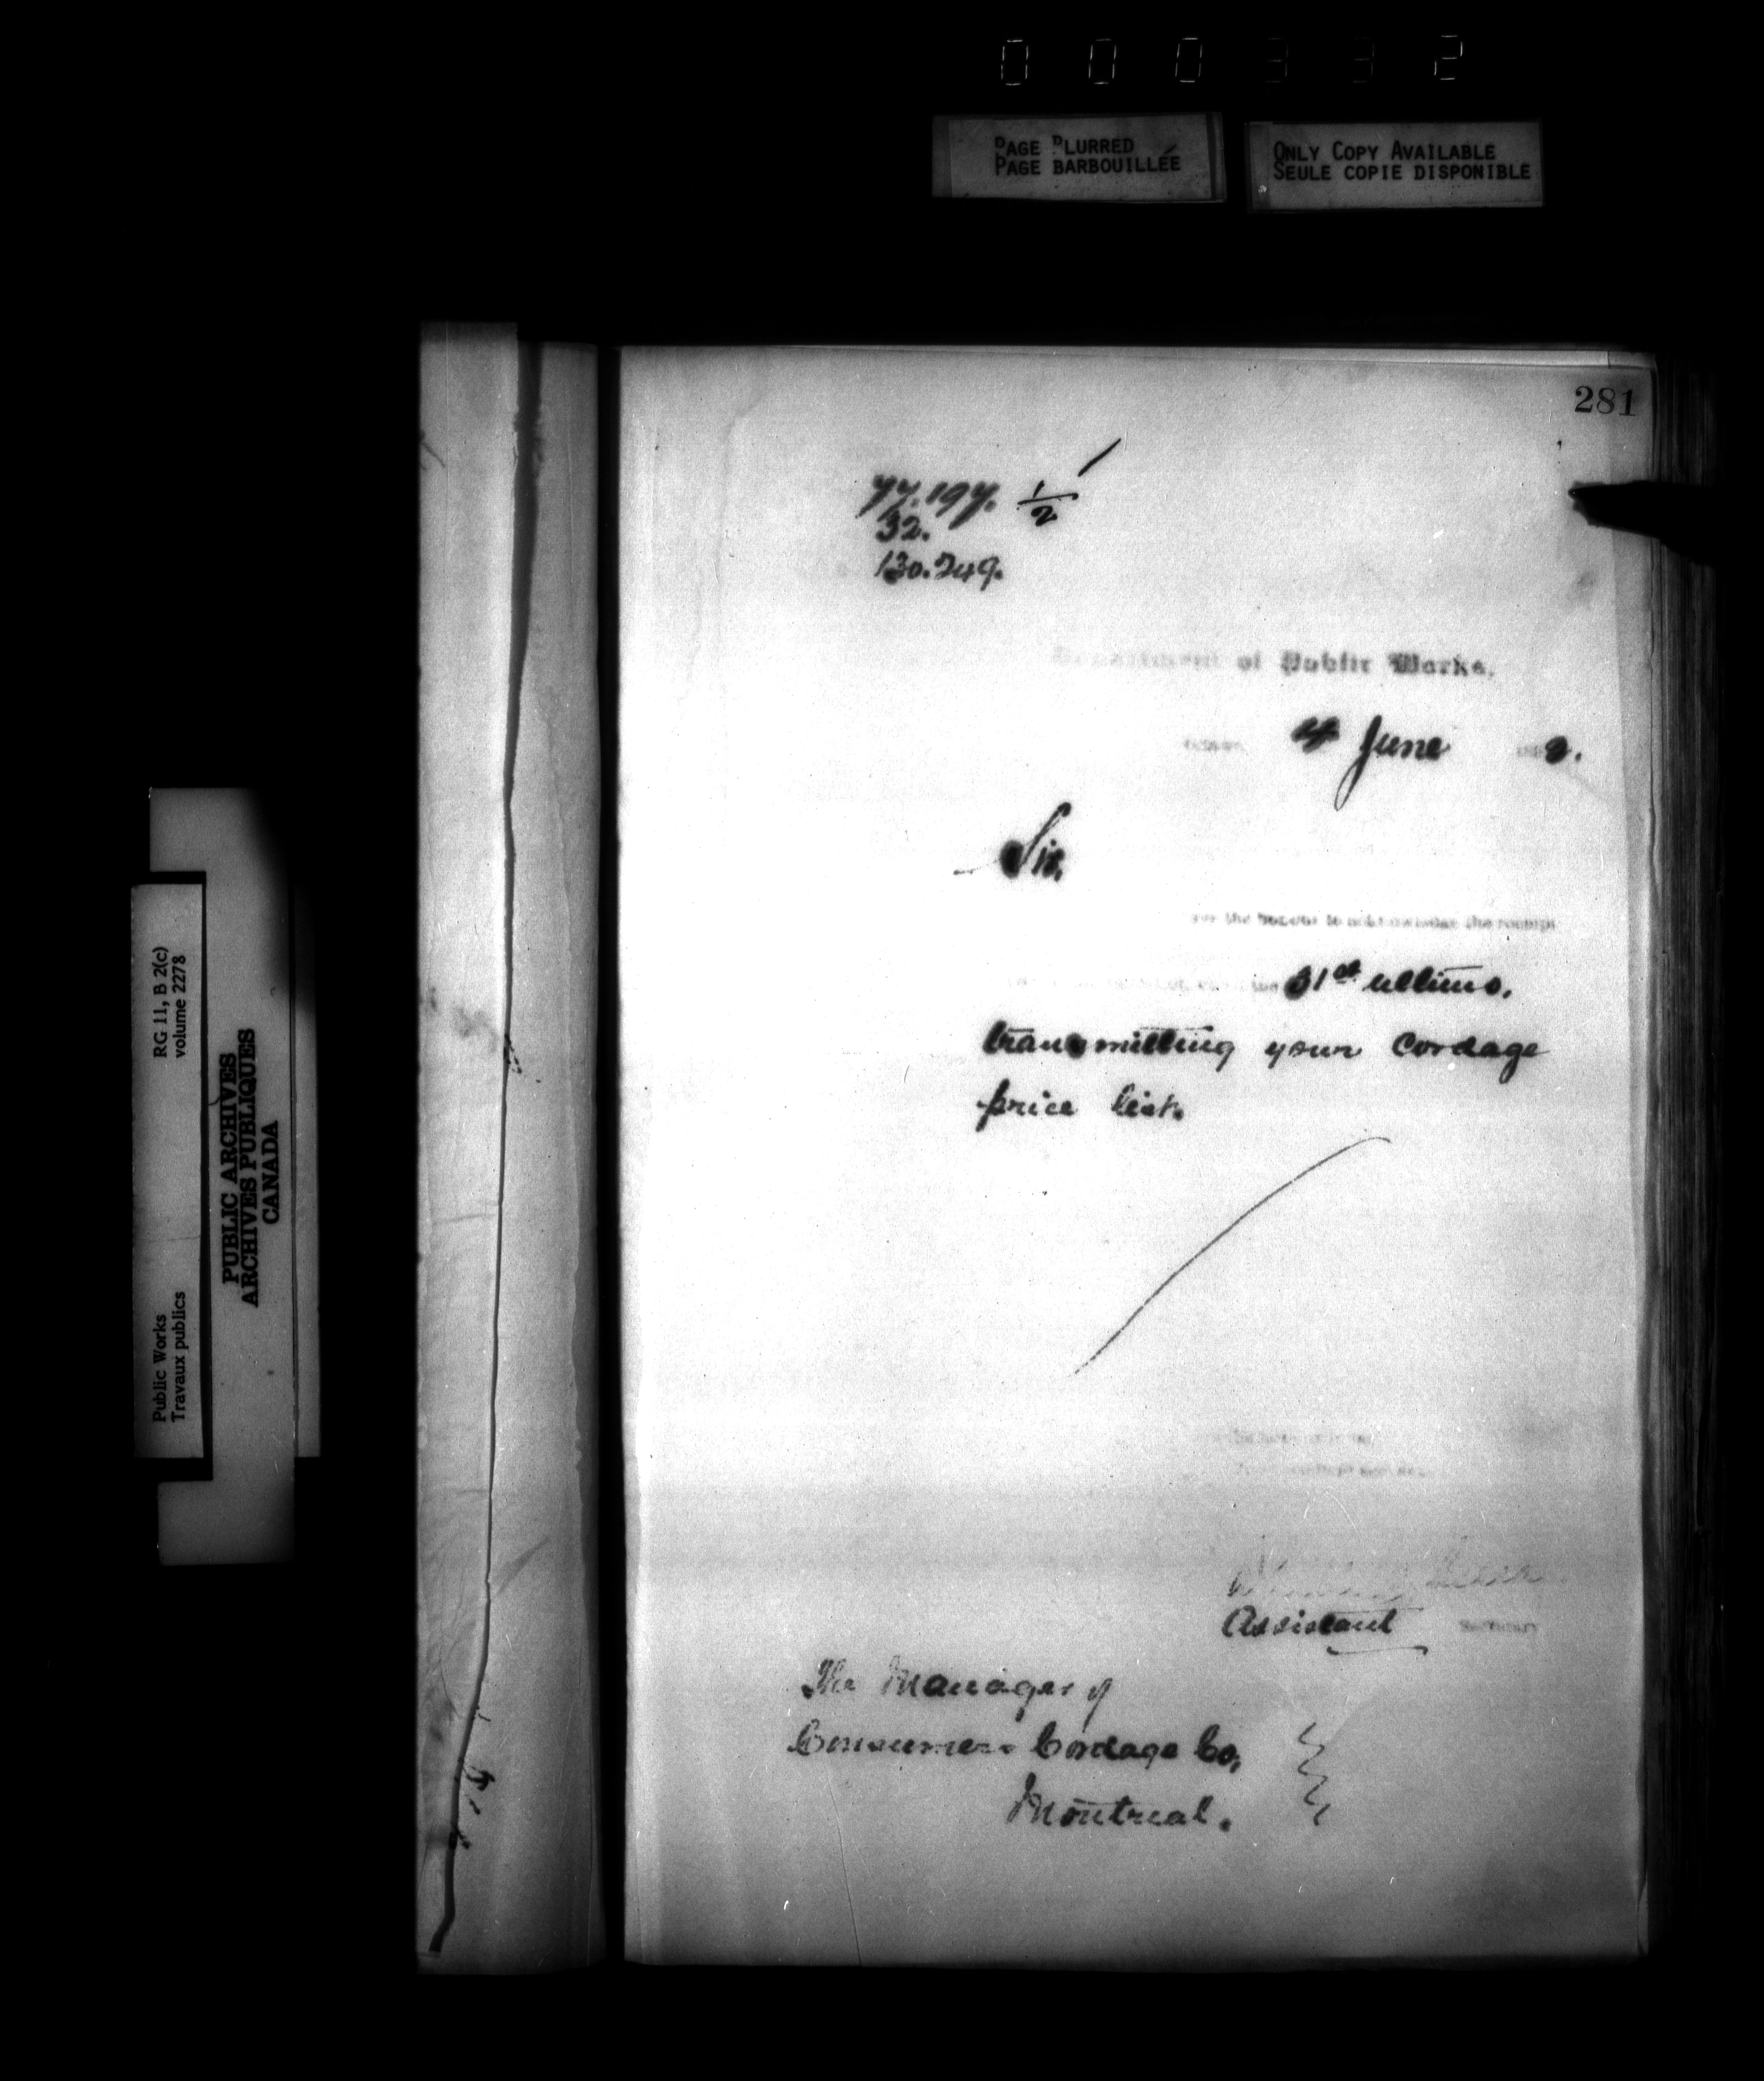 000332
PAGE BLURRED
PAGE BARBOUILLÉE
ONLY COPY AVAILABLE
SEULE COPIE DISPONIBLE
281
77.197. 1/2
32.
130.249.
Department of Public Works.
4 June
Sir,
the honour to acknowledge the receipt
31st ultimo,
transmitting your Cordage
price list.
Assistant Secretary
The Manager of
Consumers Cordage Co,
Montreal.
RG 11, B 2(c)
volume 2278
Public Works
Travaux publics
PUBLIC ARCHIVES
ARCHIVES PUBLIQUES
CANADA